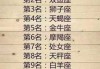 第2名：双鱼座
第3名：狮子座
第4名：天蝎座
第5名：金牛座
第6名：摩羯座
第7名：处女座
第8名：天秤座
第9名：白羊座